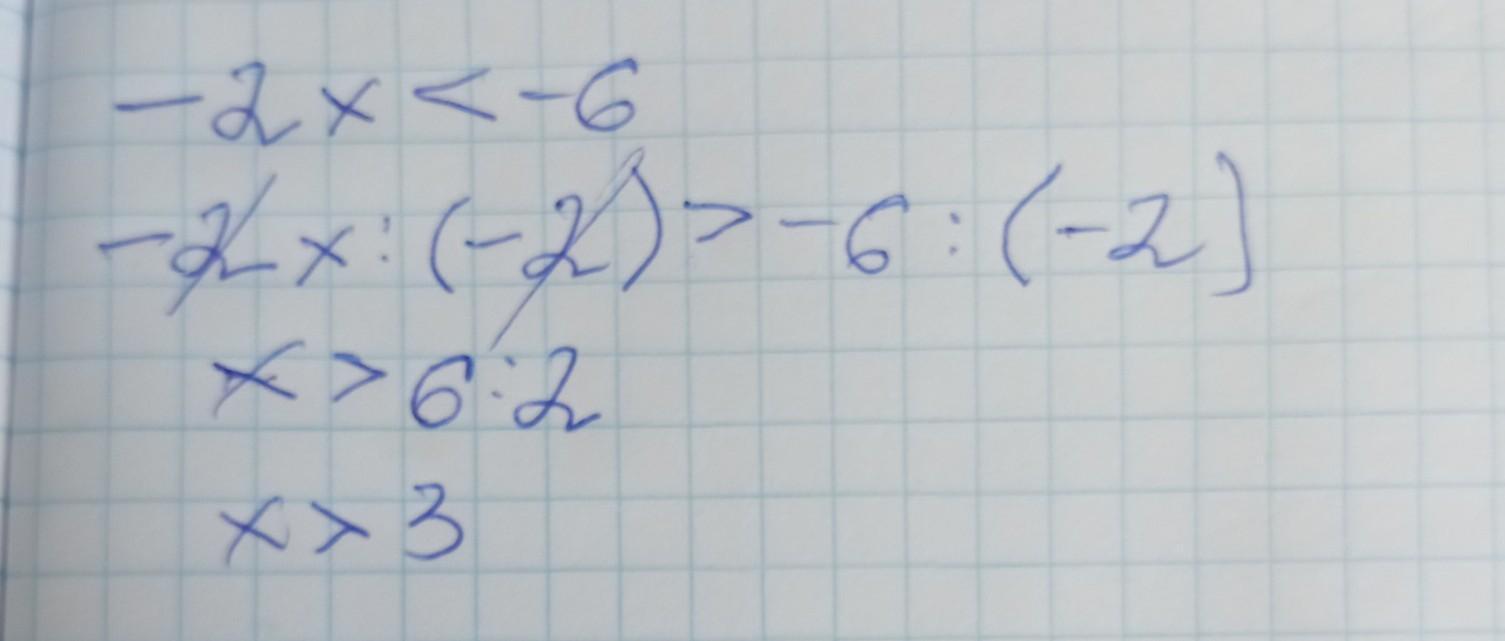 -2x < -6
-2x : (-2) > -6 : (-2]
x > 6 : 2
x > 3